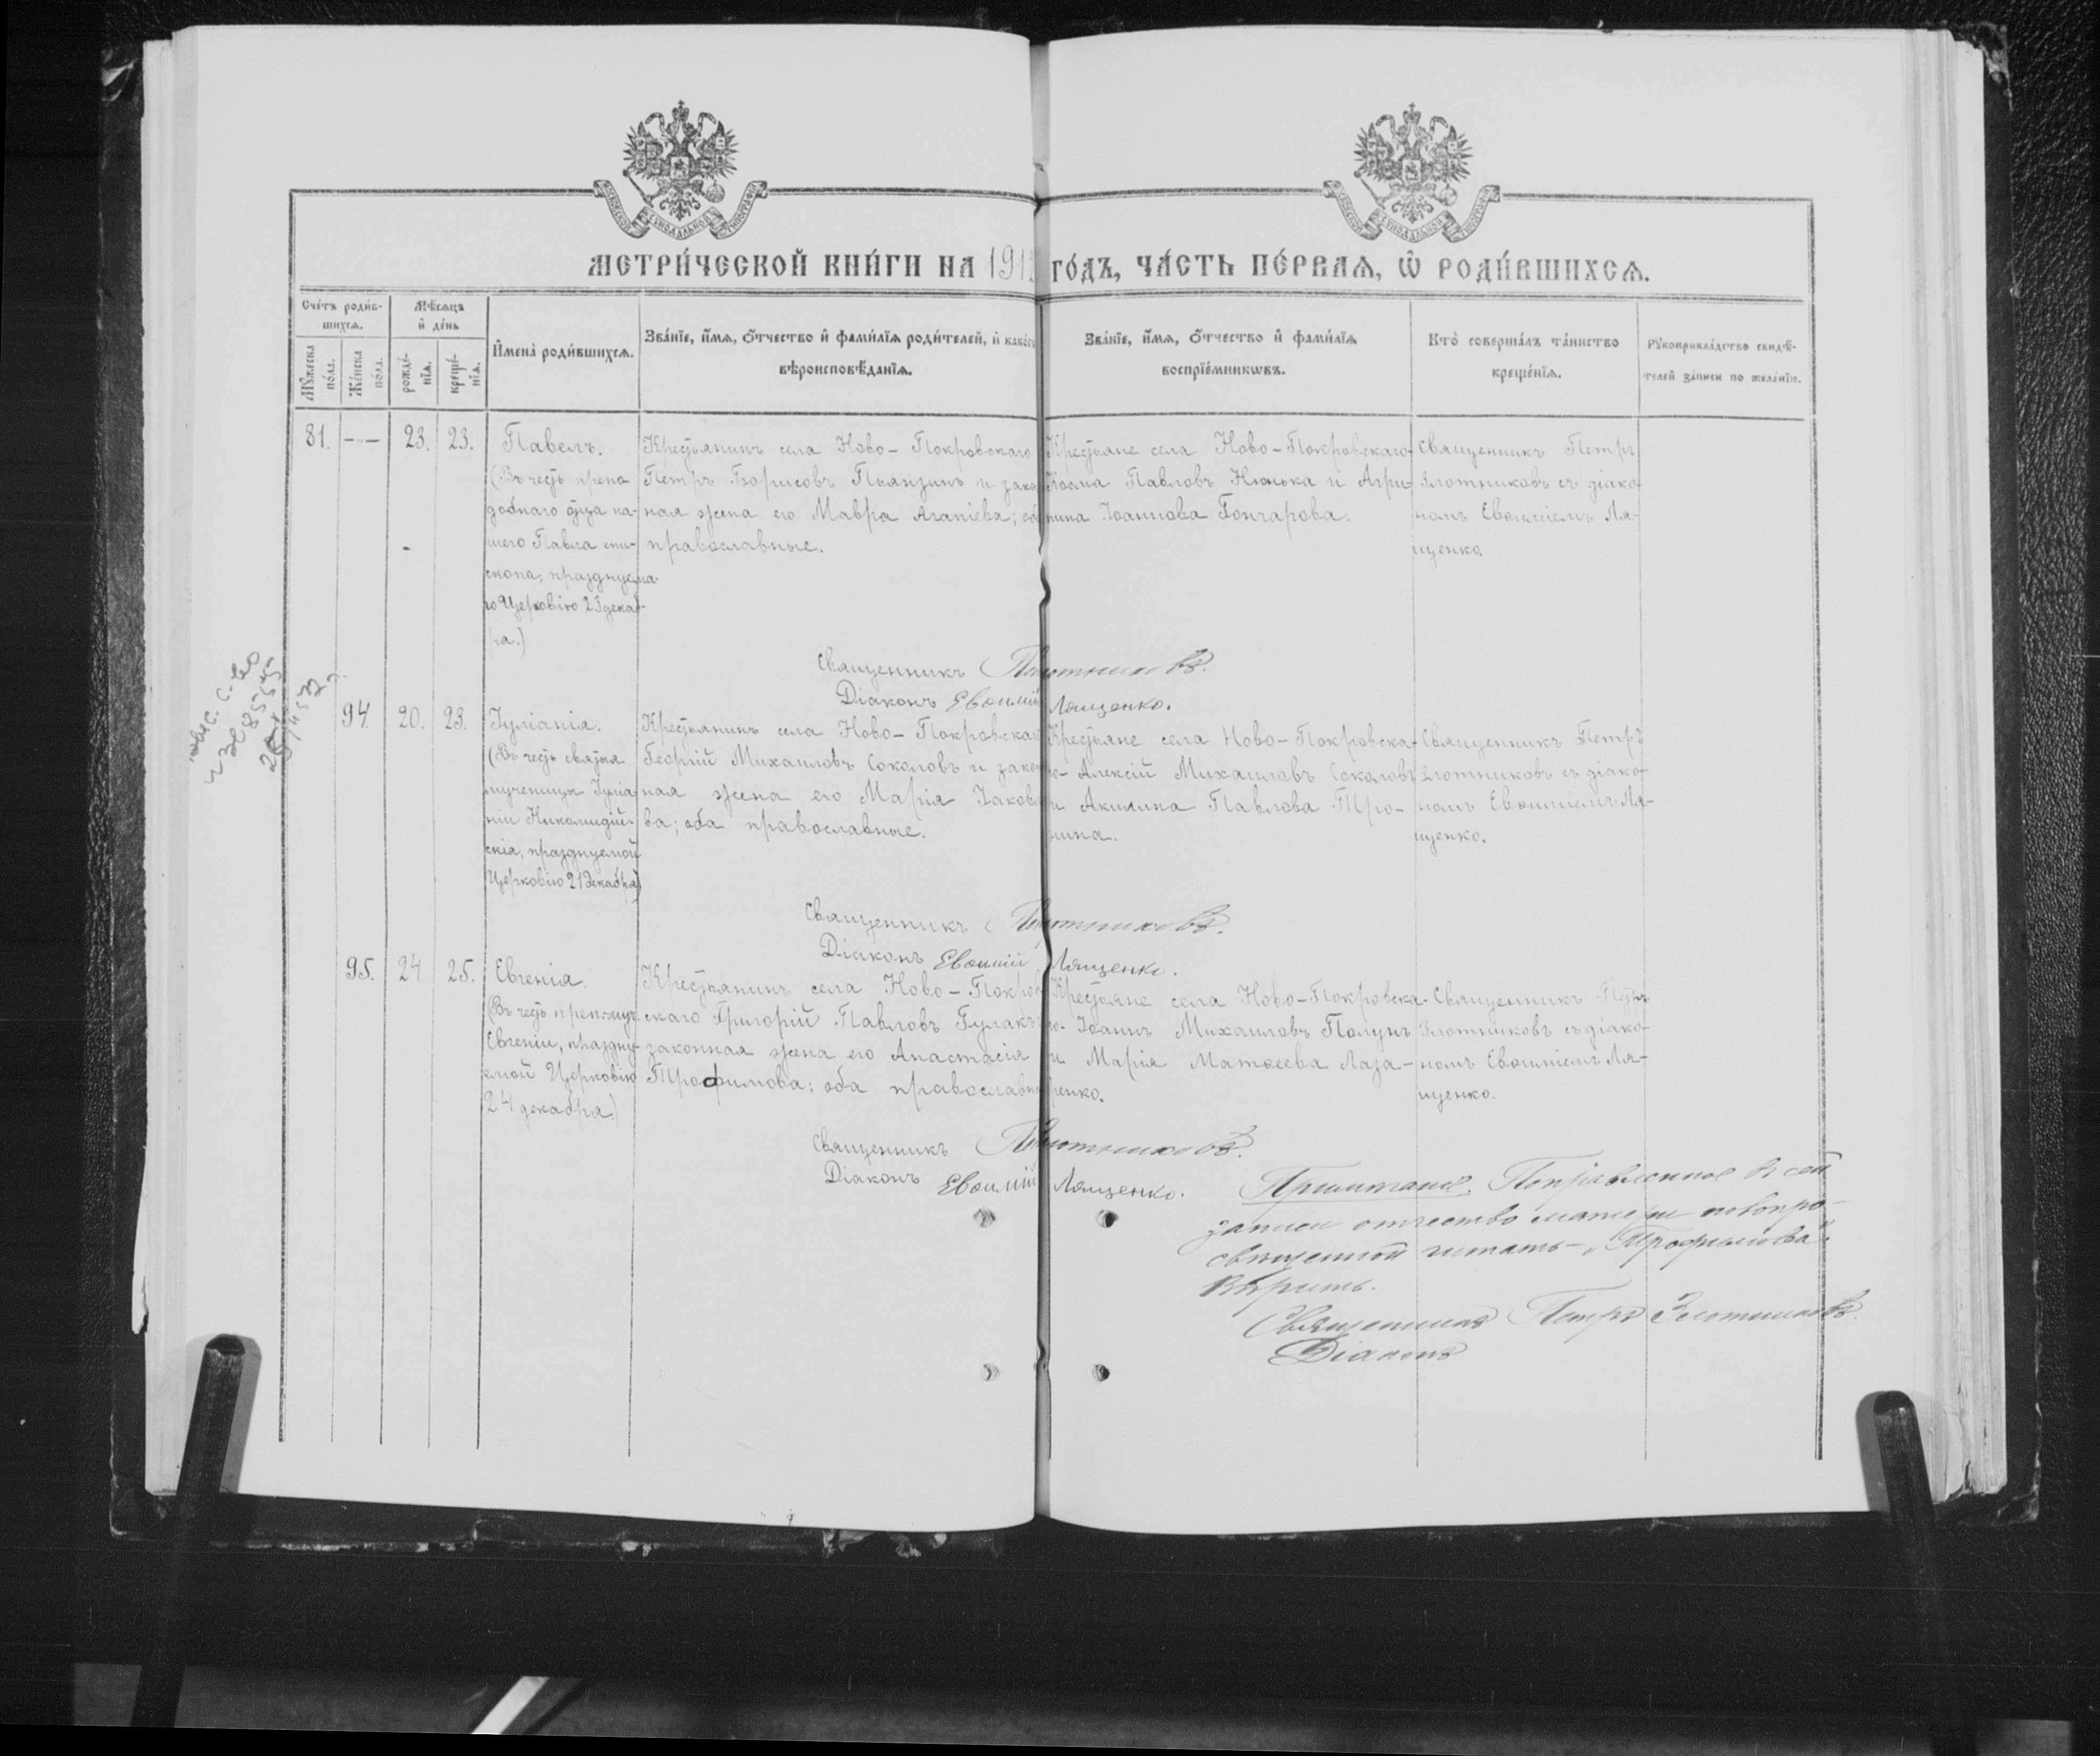 МЕТРИ́ЧЕСКОЙ КНИ́ГИ НА 191 ГО́ДЪ, ЧА́СТЬ ПЕ́РВАѦ, Ѡ҆ РОДИ́ВШИХСѦ.
Сче́тъ роди́в-
шихсѧ.
Мѣ́сѧцъ
и҆ де́нь
И҆мена̀ роди́вшихсѧ.
Зва́нїе, и҆́мѧ, ѻ҆́тчество и҆ фами́лїѧ роди́телей, и҆ како́гѡ
вѣроисповѣ́данїѧ.
Зва́нїе, и҆́мѧ, ѻ҆́тчество и҆ фами́лїѧ
воспрїе́мникѡвъ.
Кто̀ соверша́лъ та́инство
креще́нїѧ.
Рꙋкоприкла́дство свидѣ́-
телей за́писи по жела́нїю.
Мꙋ́жеска
по́ла.
Же́нска
по́ла.
рожде́-
нїѧ.
креще́-
нїѧ.
81. — 23. 23.
Павелъ.
(Въ честь препо
добнаго отца на-
шего Павла епи-
скопа, празднуема-
го Церковію 23 декаб-
ря.)
Крестьянинъ села Ново-Покровскаго
Петръ Борисовъ Пьянзинъ и закон
ная жена его Мавра Агапіева; оба
православные.
Крестьяне села Ново-Покровскаго
Косма Павловъ Нюнька и Агри-
пина Іоаннова Гончарова.
Священникъ Петръ
Злотниковъ съ діако-
номъ Евѳиміемъ Ля-
щенко.
Священникъ Злотниковъ.
Діаконъ Евѳимій Лященко.
94. 20. 23.
Іуліанія.
(Въ честь святыя
мученицы Іуліа-
ніи Никомидій-
скія, празднуемой
Церковію 21 декабря)
Крестьянинъ села Ново-Покровскаго
Георгій Михаиловъ Соколовъ и закон
ная жена его Марія Іаковле
ва; оба православные.
Крестьяне села Ново-Покровска-
го Алексій Михаиловъ Соколовъ
и Акилина Павлова Тро-
нина.
Священникъ Петръ
Злотниковъ съ діако-
номъ Евѳиміемъ Ля-
щенко.
Священникъ Злотниковъ.
Діаконъ Евѳимій Лященко.
95. 24 25.
Евгенія.
(Въ честь преп.муч.
Евгеніи, праздну-
емой Церковію
24 декабря.)
Крестьянинъ села Ново-Покров
скаго Григорій Павловъ Гулакъ и
законная жена его Анастасія
Трофимова; оба православные
Крестьяне села Ново-Покровска-
го Іоаннъ Михаиловъ Полунъ
и Марія Матѳеева Лаза-
ренко.
Священникъ Петръ
Злотниковъ съ діако-
номъ Евѳиміемъ Ля-
щенко.
Священникъ Злотниковъ.
Діаконъ Евѳимій Лященко.
Примѣчаніе. Поправленное въ сей
записи отчество матери новопро-
свѣщенной читать - „Трофимова".
Вѣрить.
Священникъ Петръ Злотниковъ.
Діаконъ